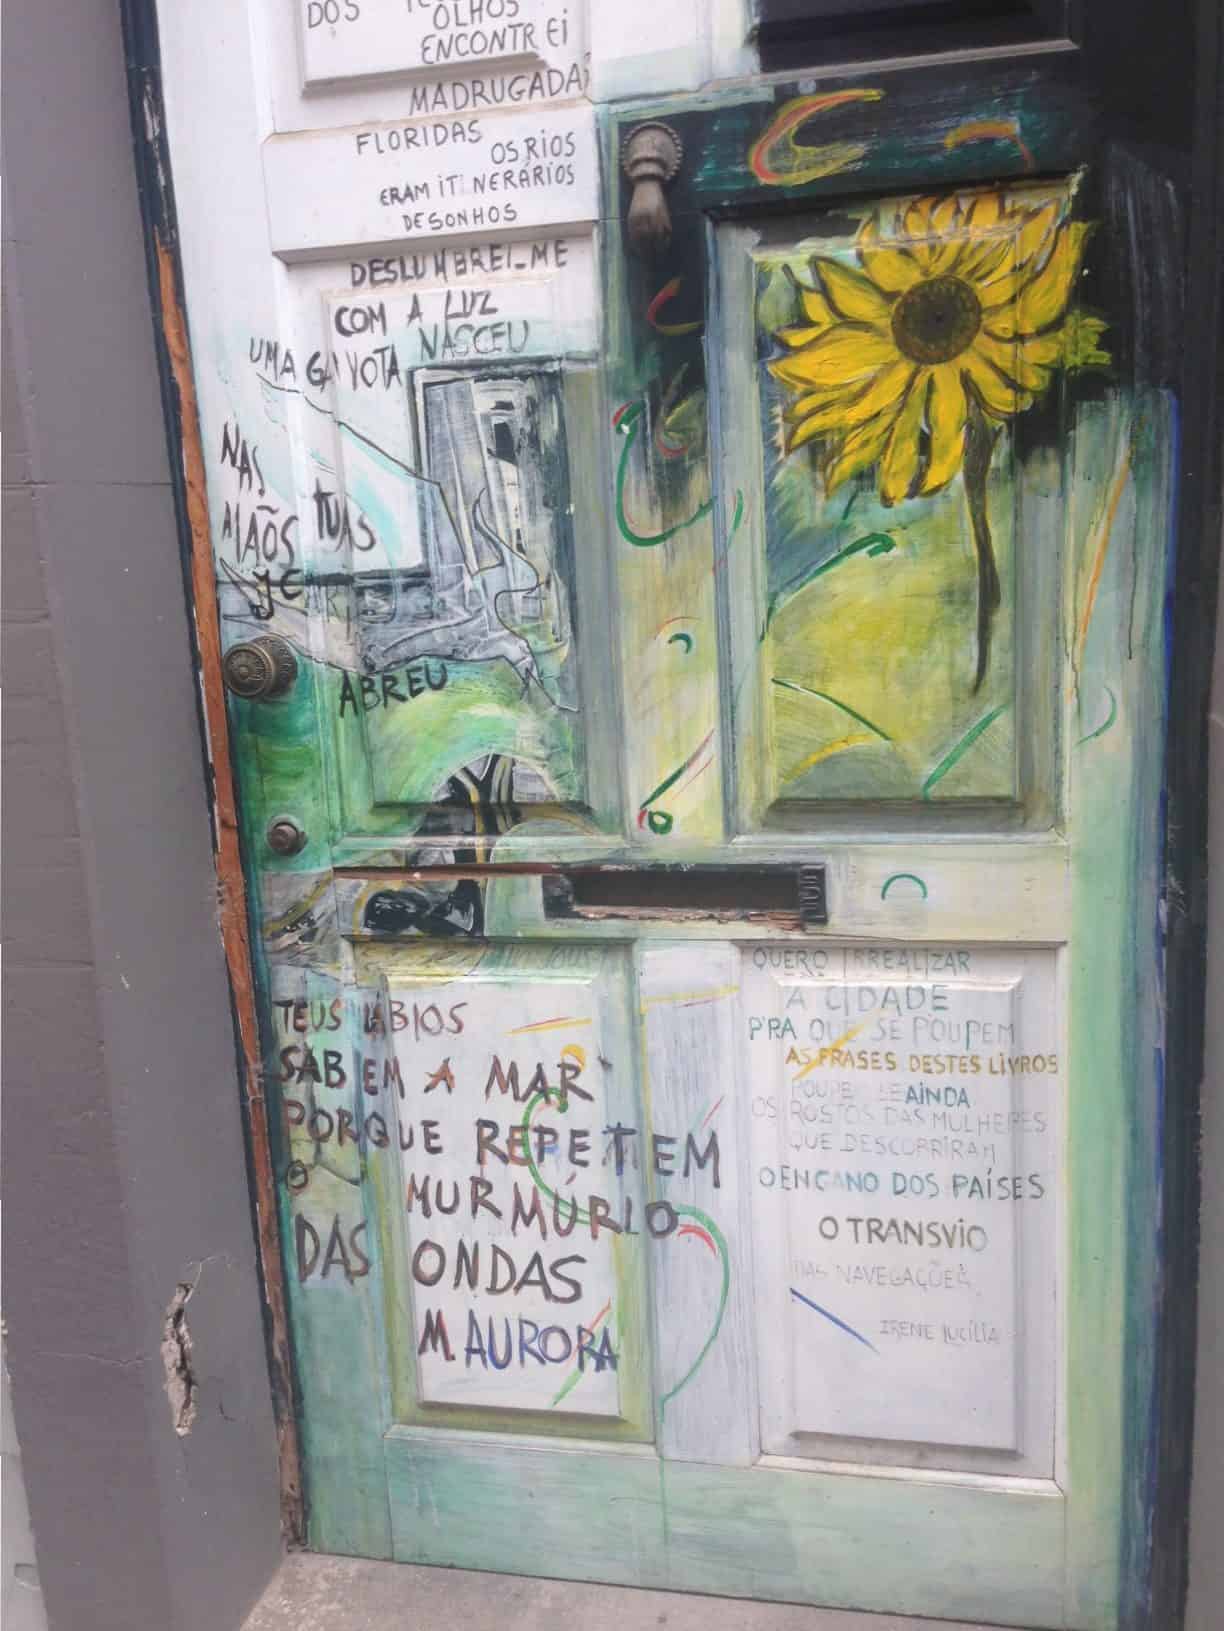 DOS
OLHOS
ENCONTREI
MADRUGADAS
FLORIDAS
OS RIOS
ERAM ITINERÁRIOS
DE SONHOS
DESLUMBREI-ME
COM A LUZ
UMA GAIVOTA NASCEU
NAS
MÃOS TUAS
JC
ABREU
TEUS LÁBIOS
SABEM A MAR
PORQUE REPETEM
O
MURMÚRIO
DAS ONDAS
M. AURORA
QUERO IRREALIZAR
A CIDADE
P'RA QUE SE POUPEM
AS FRASES DESTES LIVROS
POUPE SE AINDA
OS ROSTOS DAS MULHERES
QUE DESCOBRIRAM
O ENGANO DOS PAÍSES
O TRANSVIO
DAS NAVEGAÇÕES
IRENE LUCÍLIA